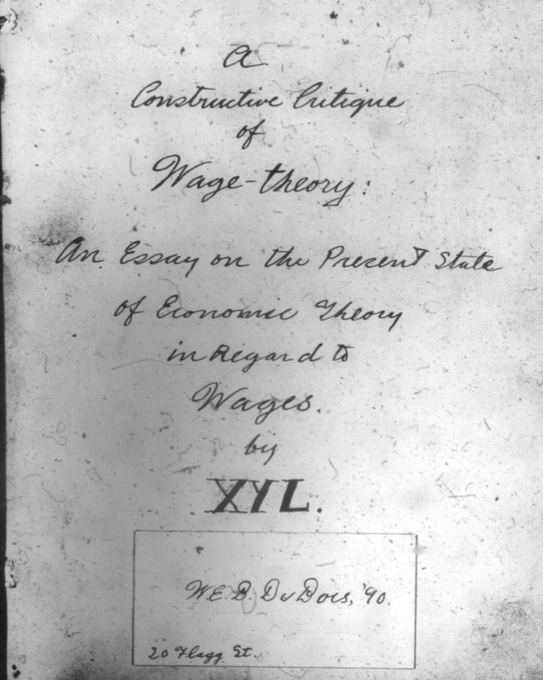 A
Constructive Critique
of
Wage-theory:
An Essay on the Present State
of Economic Theory
in Regard to
Wages.
by
XYL.
W.E.B. DuBois, '90.
20 Flagg St.